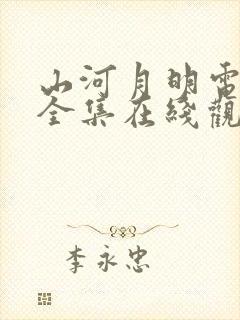 山河月明電
全集在綫觀
李永忠